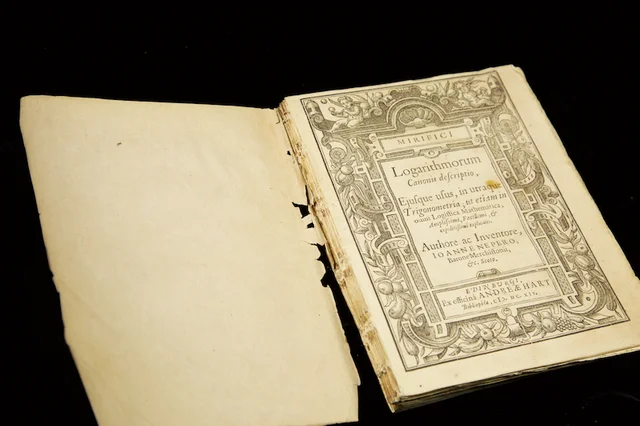 MIRIFICI
Logarithmorum
Canonis descriptio,
Ejusque usus, in utraque
Trigonometria; ut etiam in
omni Logistica Mathematica,
Amplissimi, Facillimi, &
expeditissimi explicatio.
Authore ac Inventore,
IOANNE NEPERO,
Barone Merchistonii,
&c. Scoto.
EDINBURGI,
Ex officinâ ANDREÆ HART
Bibliopôlæ, CIƆ. DC. XIV.